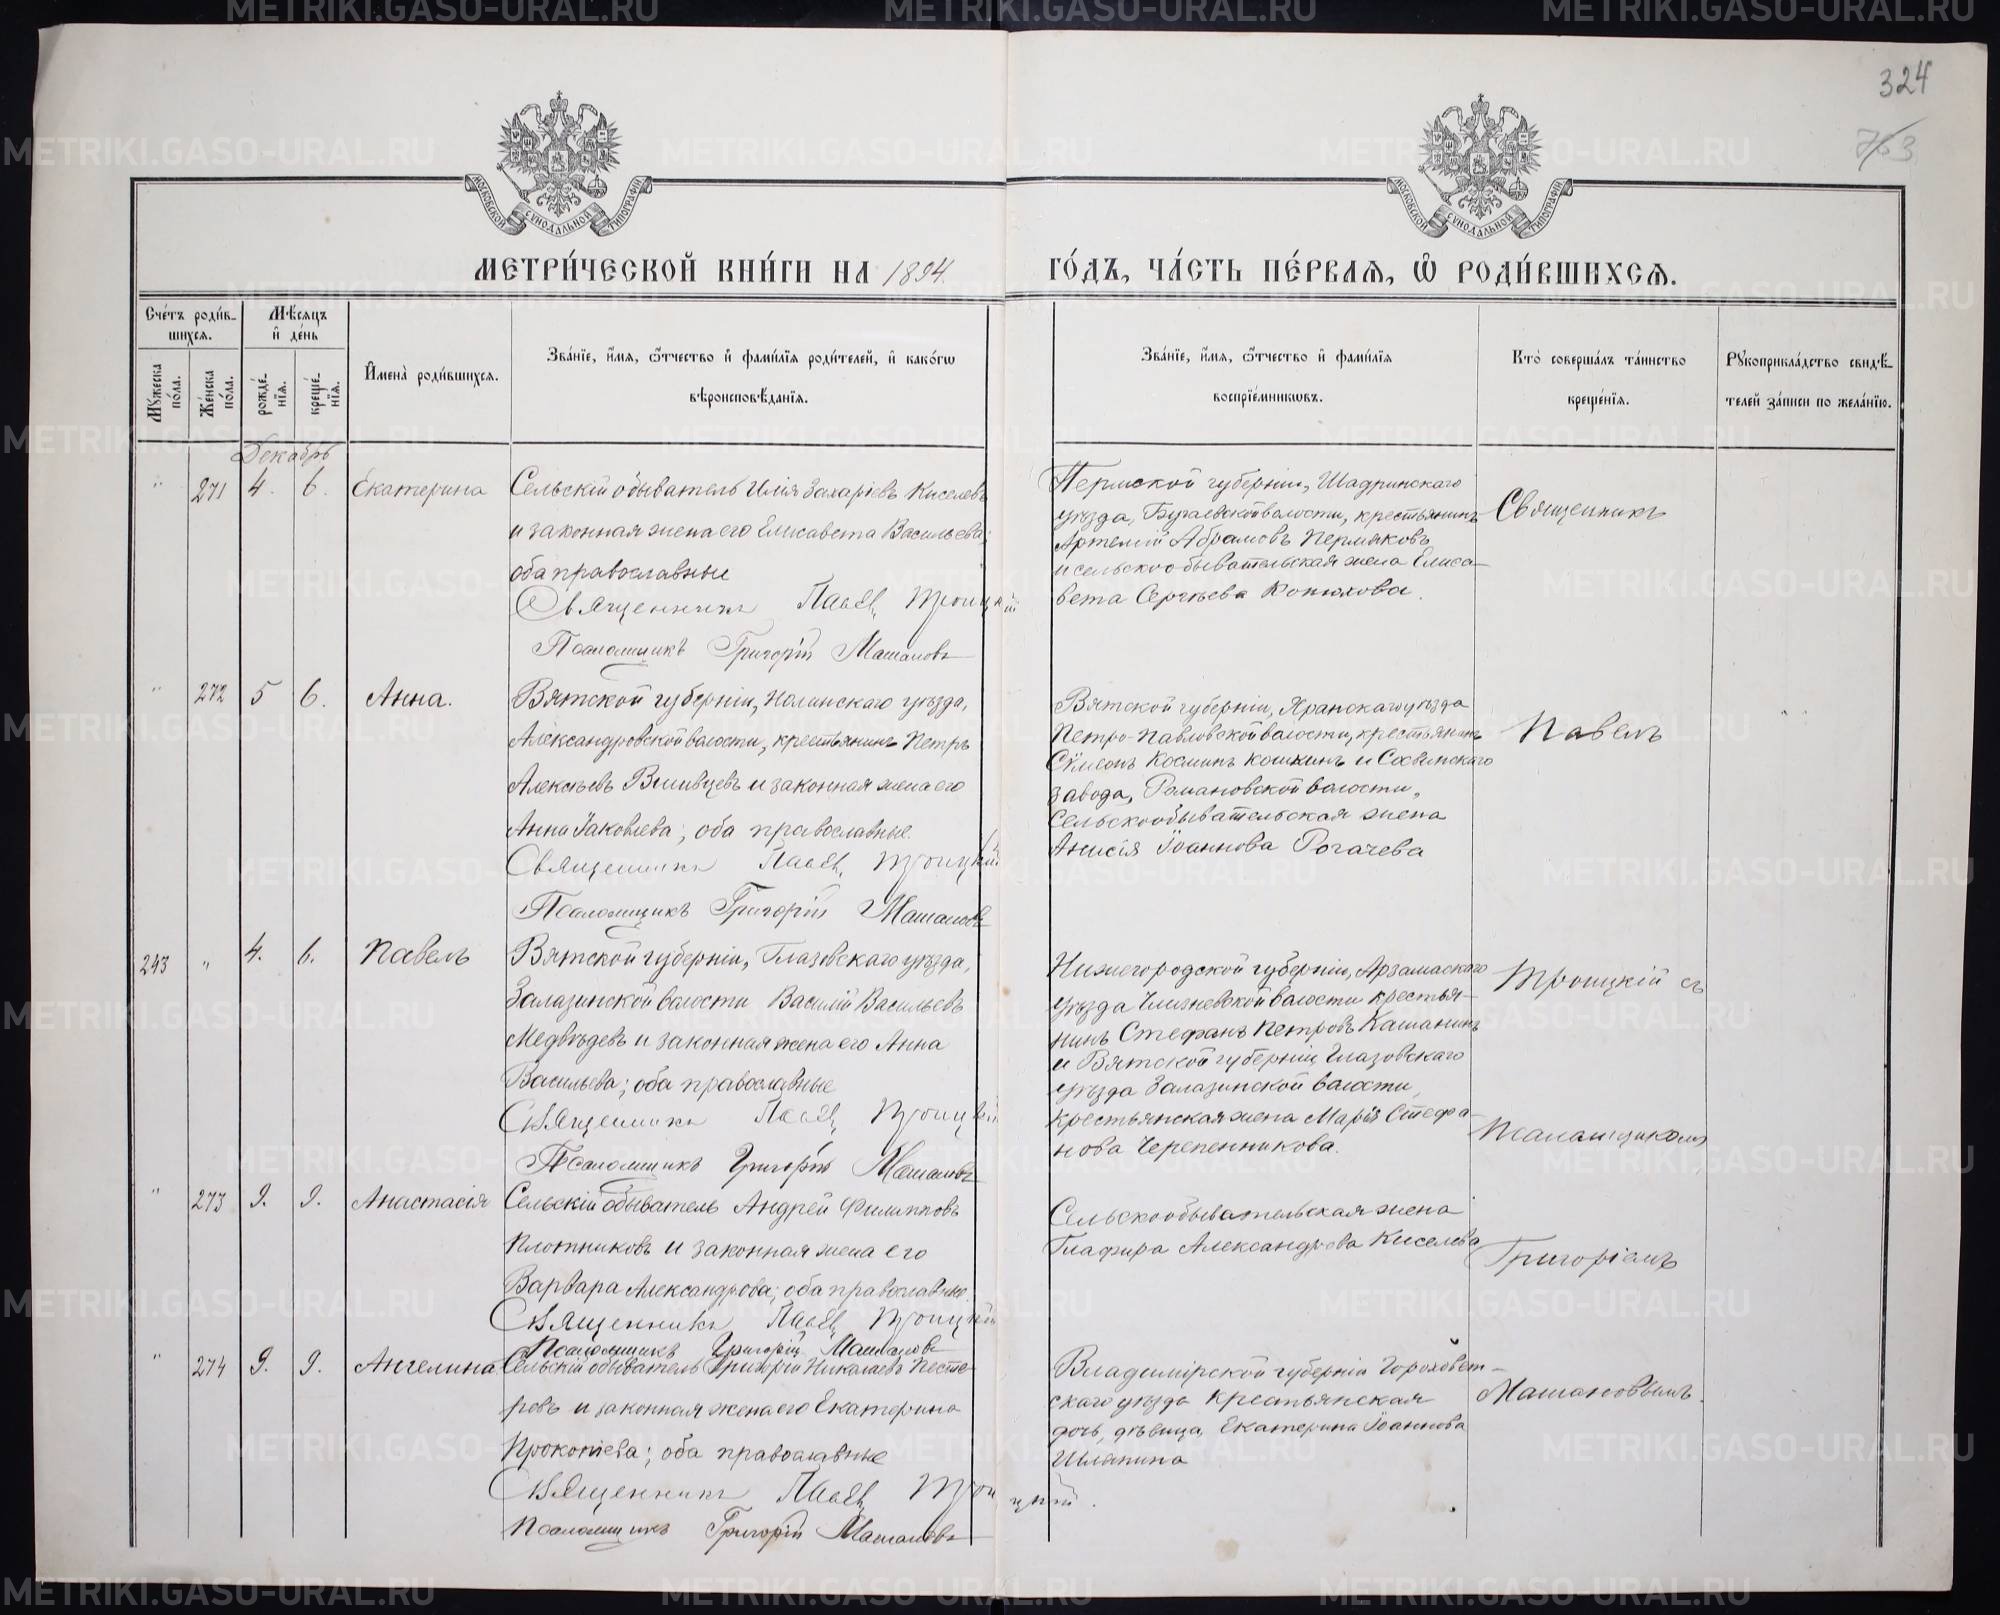 324
763
МОСКОВСКОЙ СУНОДАЛЬНОЙ ТИПОГРАФІИ
МОСКОВСКОЙ СУНОДАЛЬНОЙ ТИПОГРАФІИ
МЕТРИ́ЧЕСКОЙ КНИ́ГИ НА 1894.
ГО́ДЪ, ЧА́СТЬ ПЕ́РВАѦ, Ѡ҆ РОДИ́ВШИХСѦ.
Сче́тъ роди́в-
шихсѧ.
Мѣ́сѧцъ
и҆ де́нь
Мꙋ́жеска по́ла.
Же́нска по́ла.
рожде́-
нїѧ.
креще́-
нїѧ.
И҆мена̀ роди́вшихсѧ.
Зва́нїе, и҆́мѧ, ѻ҆́тчество и҆ фами́лїѧ роди́телей, и҆ како́гѡ
вѣроисповѣ́данїѧ.
Зва́нїе, и҆́мѧ, ѻ҆́тчество и҆ фами́лїѧ
воспрїе́мникѡвъ.
Кто̀ соверша́лъ та́инство
креще́нїѧ.
Рꙋкоприкла́дство свидѣ́-
телей за́писи по жела́нїю.
Декабрь
" 271 4. 6. Екатерина
Сельскій обыватель Илія Захаріевъ Киселевъ
и законная жена его Елисавета Васильева;
оба православные
Священникъ Павелъ Троицкій
Псаломщикъ Григорій Машановъ
Пермской губерніи, Шадринскаго
уѣзда, Бугаевской волости, крестьянинъ
Артемій Абрамовъ Пермяковъ
и сельскообывательская жена Елиса-
вета Сергѣева Конюхова.
Священникъ
" 272 5 6. Анна.
Вятской губерніи, Нолинскаго уѣзда,
Александровской волости, крестьянинъ Петръ
Алексѣевъ Вшивцевъ и законная жена его
Анна Іаковлева; оба православные.
Священникъ Павелъ Троицкій
Псаломщикъ Григорій Машановъ
Вятской губерніи, Яранскаго уѣзда
Петро-Павловской волости, крестьянинъ
Сѵмеонъ Косминъ Кошкинъ и Сосвинскаго
завода, Романовской волости,
сельскообывательская жена
Анисія Іоаннова Рогачева
Павелъ
243 " 4. 6. Павелъ
Вятской губерніи, Глазовскаго уѣзда,
Залазинской волости Василій Васильевъ
Медвѣдевъ и законная жена его Анна
Васильева; оба православные
Священникъ Павелъ Троицкій
Псаломщикъ Григорій Машановъ
Нижегородской губерніи, Арзамаскаго
уѣзда волости крестья-
нинъ Стефанъ Петровъ Кашанинъ
и Вятской губерніи Глазовскаго
уѣзда Залазинской волости,
крестьянская жена Марія Стефа-
нова Черепенникова.
Троицкій съ
Псаломщикомъ
" 273 9. 9. Анастасія
Сельскій обыватель Андрей Филипповъ
Плотниковъ и законная жена его
Варвара Александрова; оба православные.
Священникъ Павелъ Троицкій
Псаломщикъ Григорій Машановъ
Сельскообывательская жена
Глафира Александрова Киселева
Григоріемъ
" 274 9. 9. Ангелина
Сельскій обыватель Григорій Николаевъ Песте-
ревъ и законная жена его Екатерина
Прокопіева; оба православные
Священникъ Павелъ Троицкій.
Псаломщикъ Григорій Машановъ
Владимірской губерніи Гороховет-
скаго уѣзда крестьянская
дочь, дѣвица, Екатерина Іоаннова
Шляпина
Машановымъ.
METRIKI.GASO-URAL.RU